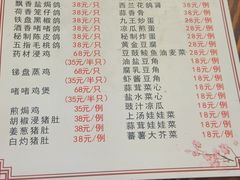 飘香盐焗鸽 38元/只
荷香笼仔鸽 38元/只
铁盘黑椒鸽 38元/只
酒香啫啫鸽 38元/只
秘制陈皮鸽 38元/只
五指毛桃鸽 38元/只
药材浸鸡 68元/只
(35元/半只)
锑盘蒸鸡 68元/只
(35元/半只)
啫啫鸡煲 68元/只
(35元/半只)
煎焗鸡 35元/例
胡椒浸猪肚 38元/例
姜葱猪肚 38元/例
白灼猪肚 38元/例
西兰花鸽肾 38元/例
蒜香骨 38元/例
九王炒蛋 28元/例
凉瓜煎蛋 28元/例
秘制炸蛋 28元/例
黄金豆腐 28元/例
豆豉鲮鱼油麦菜 28元/例
油盐豆角 18元/例
腐乳豆角 18元/例
虾酱豆角 18元/例
蒜茸菜心 18元/例
盐水菜心 18元/例
豉汁凉瓜 18元/例
上汤娃娃菜 18元/例
蒜茸娃娃菜 18元/例
蕃薯大芥菜 18元/例